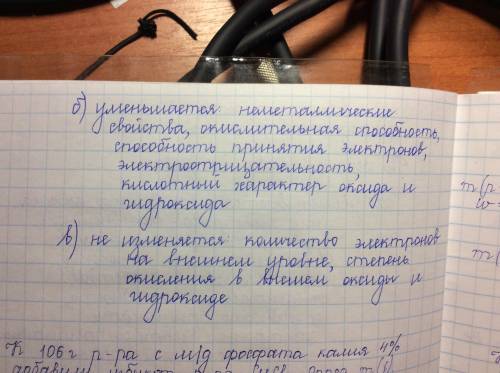 б) уменьшается: неметаллические
свойства, окислительная способность,
способность принятия электронов,
электроотрицательность,
кислотный характер оксида и
гидроксида
в) не изменяется количество электронов
на внешнем уровне, степень
окисления в высшем оксиды и
гидроксиде
m(р
w=
m(
К 106 г р-ра с м/д фосфата калия 4%
добавили